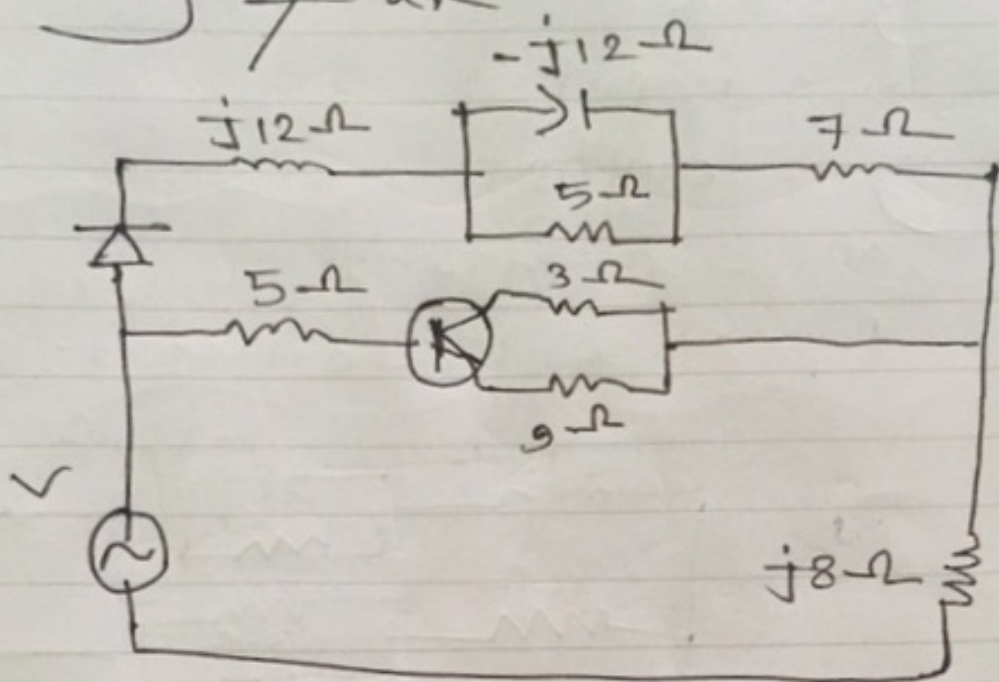 -j12Ω
j12Ω
7Ω
5Ω
5Ω
3Ω
9Ω
V
j8Ω